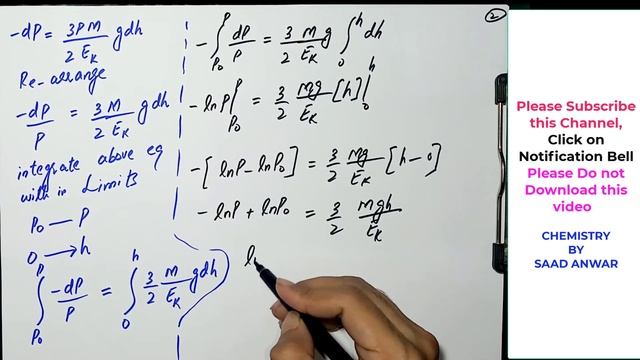 -dP = 3PM/2E_K gdh
Re-arrange
-dP/P = 3/2 M/E_K gdh
integrate above eq
with in Limits
P₀ — P
0 → h
∫_{P₀}^{P} -dP/P = ∫_{0}^{h} 3/2 M/E_K gdh
2
-∫_{P₀}^{P} dP/P = 3/2 M/E_K g ∫_{0}^{h} dh
-lnP|_{P₀}^{P} = 3/2 mg/E_K [h]|_{0}^{h}
-[lnP-lnP₀] = 3/2 mg/E_K [h-0]
-lnP + lnP₀ = 3/2 Mgh/E_K
l
Please Subscribe
this Channel,
Click on
Notification Bell
Please Do not
Download this
video
CHEMISTRY
BY
SAAD ANWAR